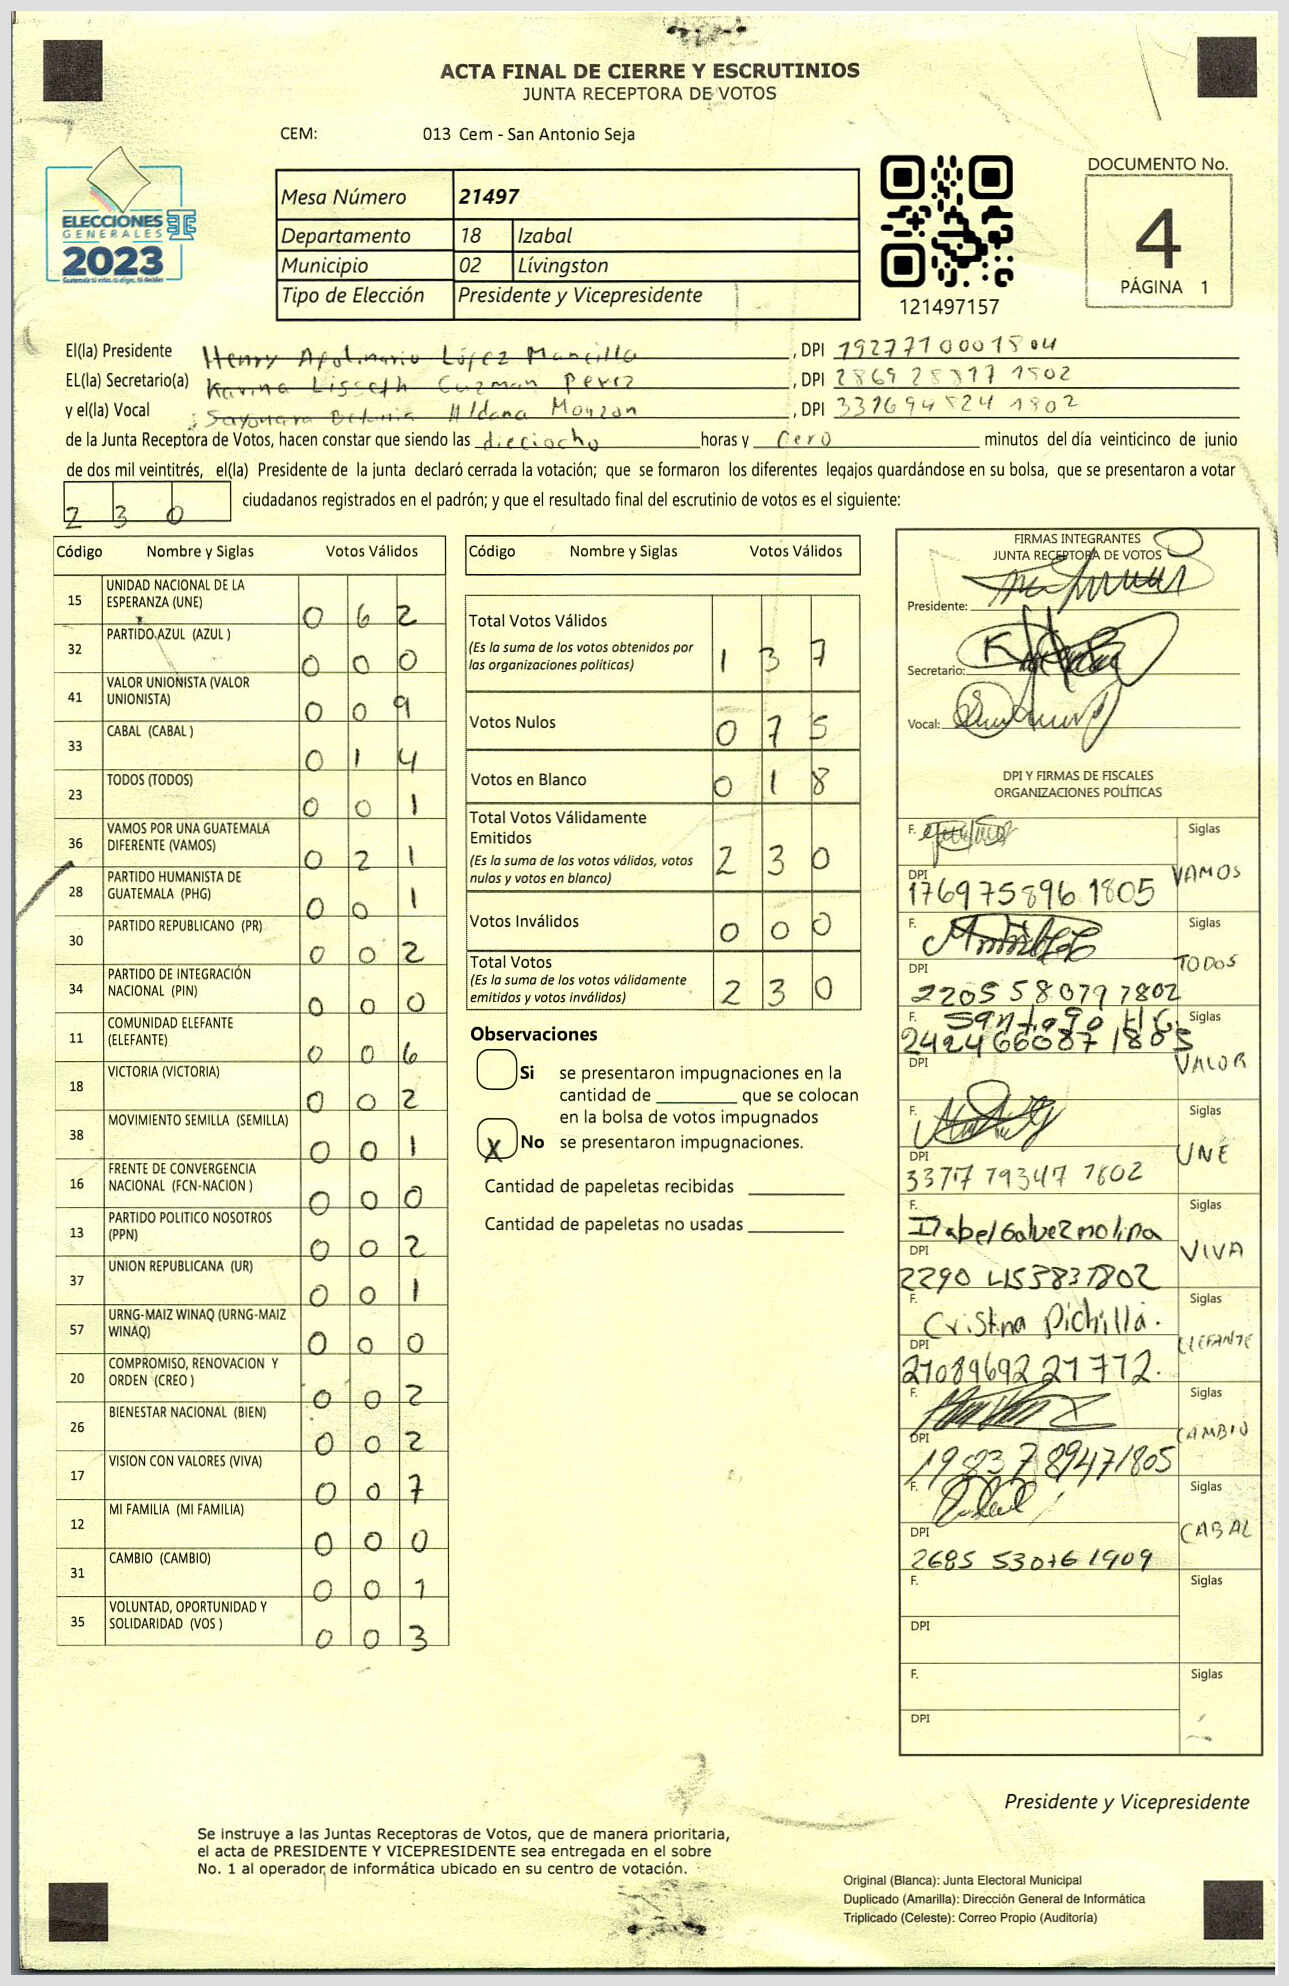 ACTA FINAL DE CIERRE Y ESCRUTINIOS
JUNTA RECEPTORA DE VOTOS
CEM: 013 Cem - San Antonio Seja
ELECCIONES
GENERALES
2023
Mesa Número 21497
Departamento 18 Izabal
Municipio 02 Lívingston
Tipo de Elección Presidente y Vicepresidente
121497157
DOCUMENTO No.
4
PÁGINA 1
El(la) Presidente Henry Apolinario López Mancilla, DPI
EL(la) Secretario(a) Karina Lisseth Guzman Perez, DPI
y el(la) Vocal Sayonara Betania Aldana Monzon, DPI
de la Junta Receptora de Votos, hacen constar que siendo las dieciocho horas y cero minutos del día veinticinco de junio
de dos mil veintitrés, el(la) Presidente de la junta declaró cerrada la votación; que se formaron los diferentes legajos quardándose en su bolsa, que se presentaron a votar
230 ciudadanos registrados en el padrón; y que el resultado final del escrutinio de votos es el siguiente:
Código Nombre y Siglas Votos Válidos
15 UNIDAD NACIONAL DE LA ESPERANZA (UNE) 0 6 2
32 PARTIDO AZUL (AZUL ) 0 0 0
41 VALOR UNIONISTA (VALOR UNIONISTA) 0 0 9
33 CABAL (CABAL ) 0 1 4
23 TODOS (TODOS) 0 0 1
36 VAMOS POR UNA GUATEMALA DIFERENTE (VAMOS) 0 2 1
28 PARTIDO HUMANISTA DE GUATEMALA (PHG) 0 0 1
30 PARTIDO REPUBLICANO (PR) 0 0 2
34 PARTIDO DE INTEGRACIÓN NACIONAL (PIN) 0 0 0
11 COMUNIDAD ELEFANTE (ELEFANTE) 0 0 6
18 VICTORIA (VICTORIA) 0 0 2
38 MOVIMIENTO SEMILLA (SEMILLA) 0 0 1
16 FRENTE DE CONVERGENCIA NACIONAL (FCN-NACION ) 0 0 0
13 PARTIDO POLITICO NOSOTROS (PPN) 0 0 2
37 UNION REPUBLICANA (UR) 0 0 1
57 URNG-MAIZ WINAQ (URNG-MAIZ WINAQ) 0 0 0
20 COMPROMISO, RENOVACION Y ORDEN (CREO ) 0 0 2
26 BIENESTAR NACIONAL (BIEN) 0 0 2
17 VISION CON VALORES (VIVA) 0 0 7
12 MI FAMILIA (MI FAMILIA) 0 0 0
31 CAMBIO (CAMBIO) 0 0 1
35 VOLUNTAD, OPORTUNIDAD Y SOLIDARIDAD (VOS ) 0 0 3
Código Nombre y Siglas Votos Válidos
Total Votos Válidos 1 3 7
(Es la suma de los votos obtenidos por
las organizaciones políticas)
Votos Nulos 0 7 5
Votos en Blanco 0 1 8
Total Votos Válidamente
Emitidos 2 3 0
(Es la suma de los votos válidos, votos
nulos y votos en blanco)
Votos Inválidos 0 0 0
Total Votos 2 3 0
(Es la suma de los votos válidamente
emitidos y votos inválidos)
Observaciones
Si se presentaron impugnaciones en la
cantidad de ________ que se colocan
en la bolsa de votos impugnados
X No se presentaron impugnaciones.
Cantidad de papeletas recibidas
Cantidad de papeletas no usadas
FIRMAS INTEGRANTES
JUNTA RECEPTORA DE VOTOS
Presidente:
Secretario:
Vocal:
DPI Y FIRMAS DE FISCALES
ORGANIZACIONES POLÍTICAS
F. Siglas
DPI VAMOS
1769758961805
F. Siglas
DPI TODOS
2205 58079 1802
F. Santiago H.C. Siglas
2424660871805
DPI VALOR
F. Siglas
DPI UNE
3377 79347 1802
F. Isabel Galvez molina Siglas
DPI VIVA
F. Cristina Pichillá. Siglas
DPI ELEFANTE
F. Siglas
DPI CAMBIO
1983789471805
F. Siglas
DPI CABAL
2685 53076 1909
F. Siglas
DPI
F. Siglas
DPI
Presidente y Vicepresidente
Se instruye a las Juntas Receptoras de Votos, que de manera prioritaria,
el acta de PRESIDENTE Y VICEPRESIDENTE sea entregada en el sobre
No. 1 al operador de informática ubicado en su centro de votación.
Original (Blanca): Junta Electoral Municipal
Duplicado (Amarilla): Dirección General de Informática
Triplicado (Celeste): Correo Propio (Auditoría)